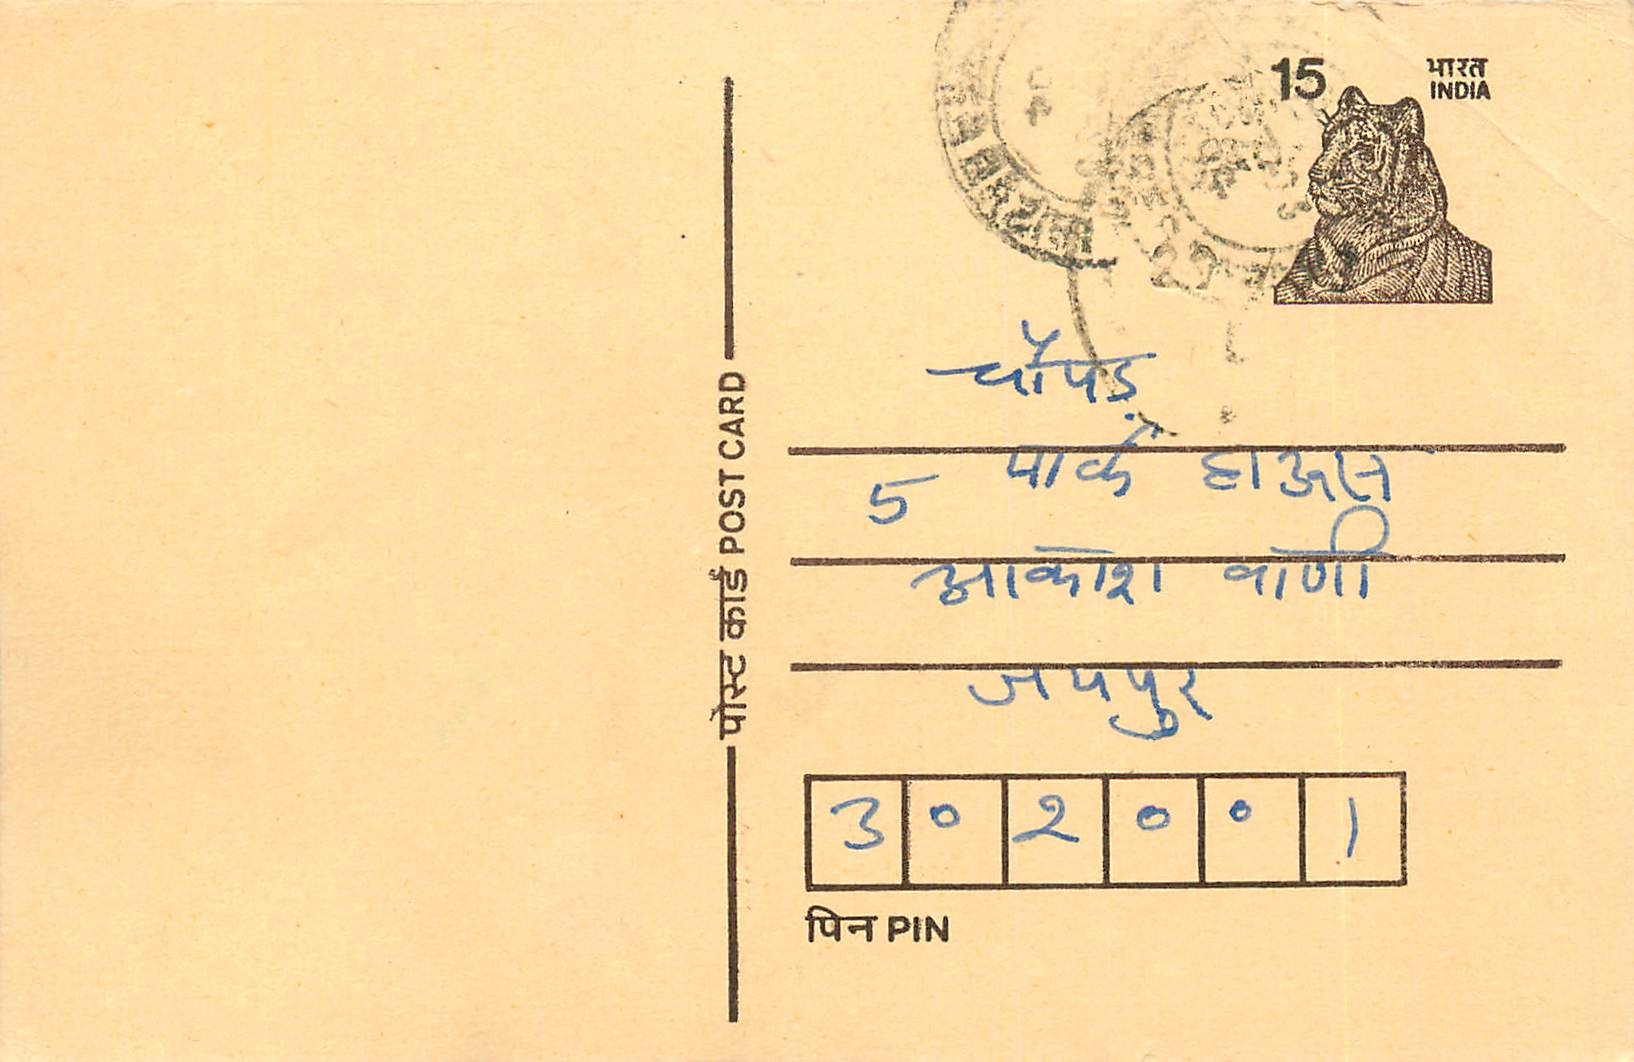 15 भारत
INDIA
चौपड़
5 पार्क हाऊस
आकाश वाणी
जयपुर
3 0 2 0 0 1
पिन PIN
पोस्ट कार्ड POST CARD